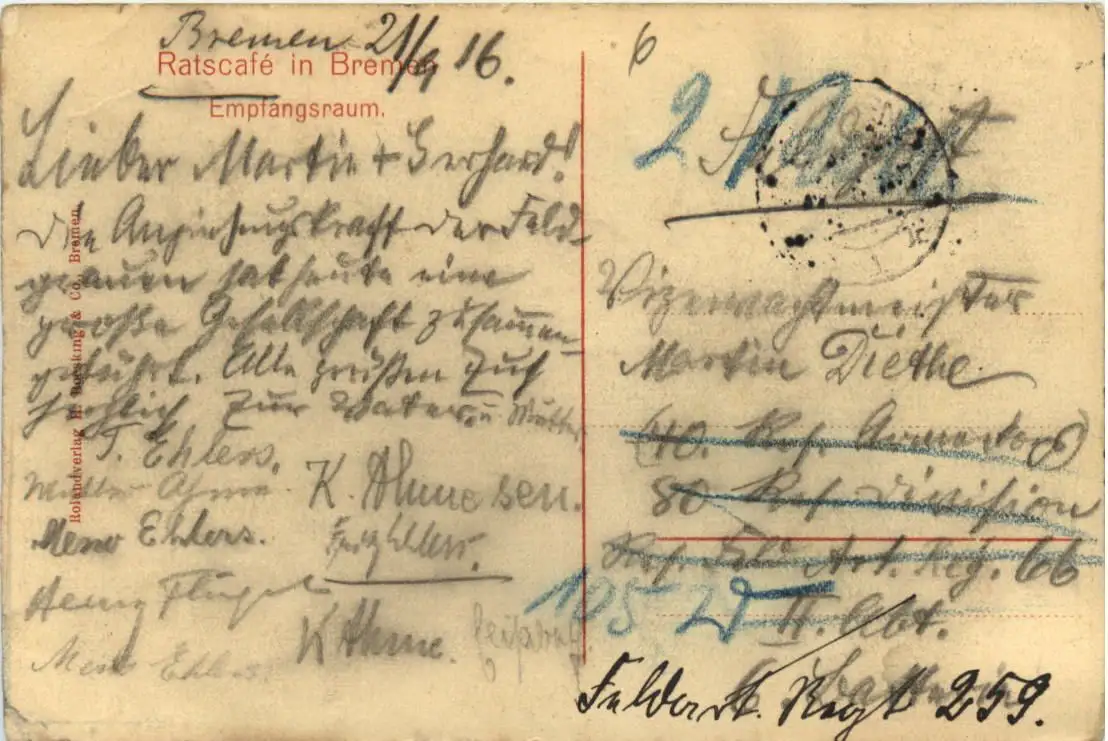 Bremen 21/9 16.
Ratscafé in Bremen
Empfangsraum.
Lieber Martin + Gerhard!
Die Anziehungskraft der Feld-
grauen hat heute eine
große Gesellschaft zusammen-
geführt. Alle grüßen Euch
herzlich Eur Vater u Mutter
T. Ehlers.
K. Ahme sen.
Meno Ehlers.
Ehlers.
Henny Flügel
K Ahme.
Meno Ehlers.
Rolandverlag H. & Co., Bremen.
6
2
Vizewachtmeister
Martin Diethe
(40. Res. Armeekorps)
80 Res. Division
Res. Feld Art. Reg. 66
105
II. Abt.
6 Batterie
Feldart. Regt 259.